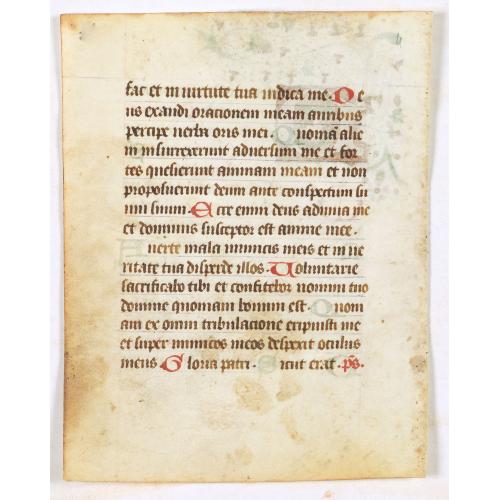 fac et in virtute tua iudica me. De
us exaudi oracionem meam auribus
percipe verba oris mei. Quoniam alie
ni insurrexerunt adversum me et for
tes quesierunt animam meam et non
proposuerunt deum ante conspectum su
um suum. Ecce enim deus adiuva me
et dominus susceptor est anime mee.
verte mala inimicis meis et in ve
ritate tua disperde illos. Voluntarie
sacrificabo tibi et confitebor nomini tuo
domine quoniam bonum est. Quoni
am ex omni tribulacione eripuisti me
et super inimicos meos despexit oculus
meus Gloria patri. Sicut erat. ps.